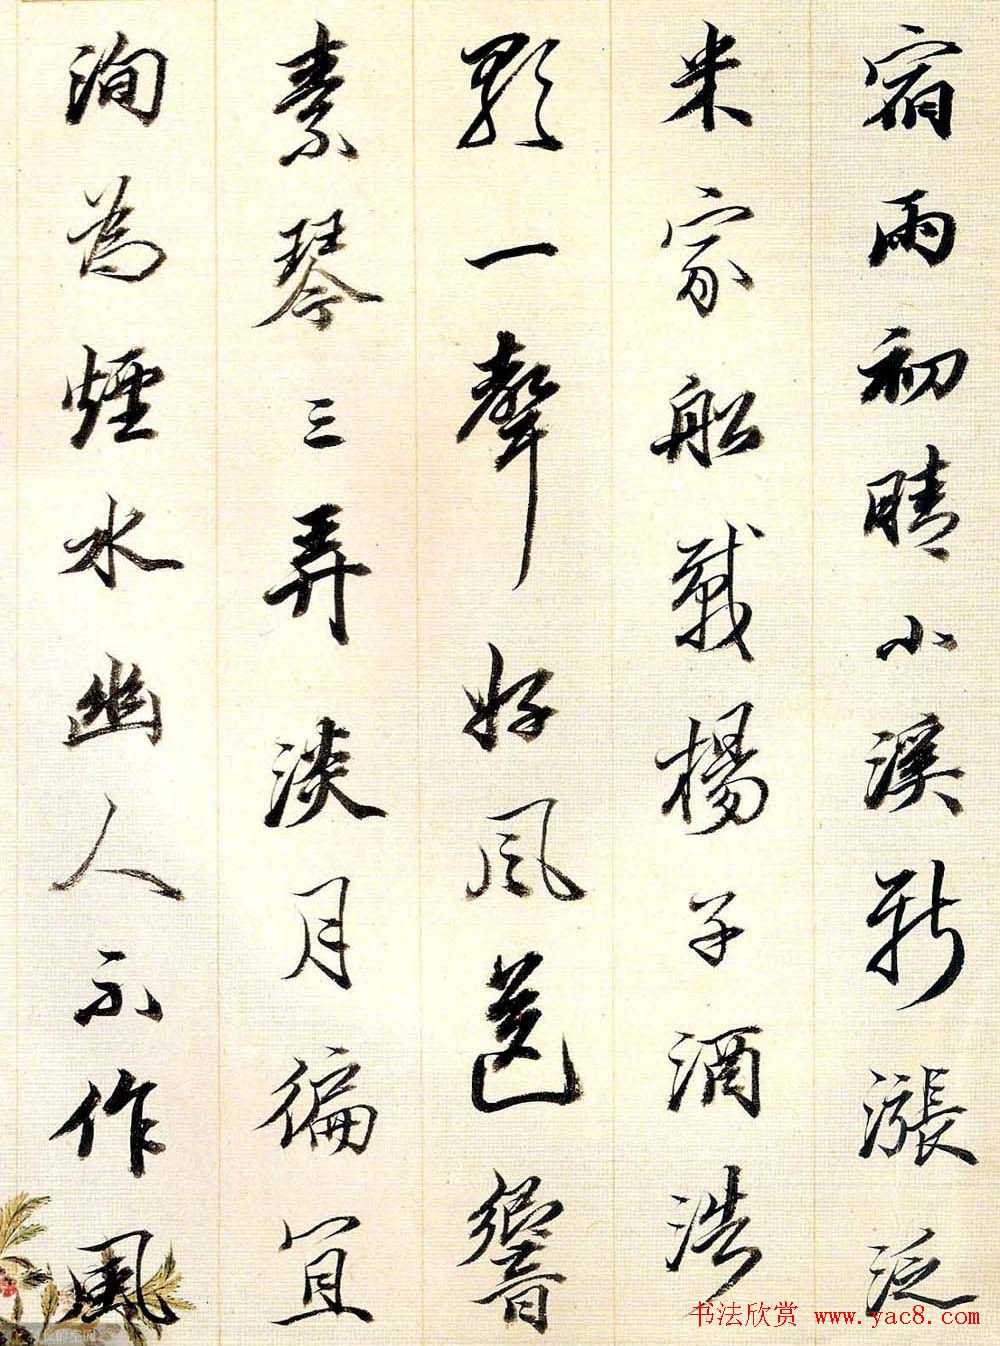 宿雨初晴小溪新漲泛
米家船載楊子酒浩
歌一聲好風送響
素琴三弄淡月偏宜
洵為煙水幽人不作風
书法欣赏 www.yac8.com